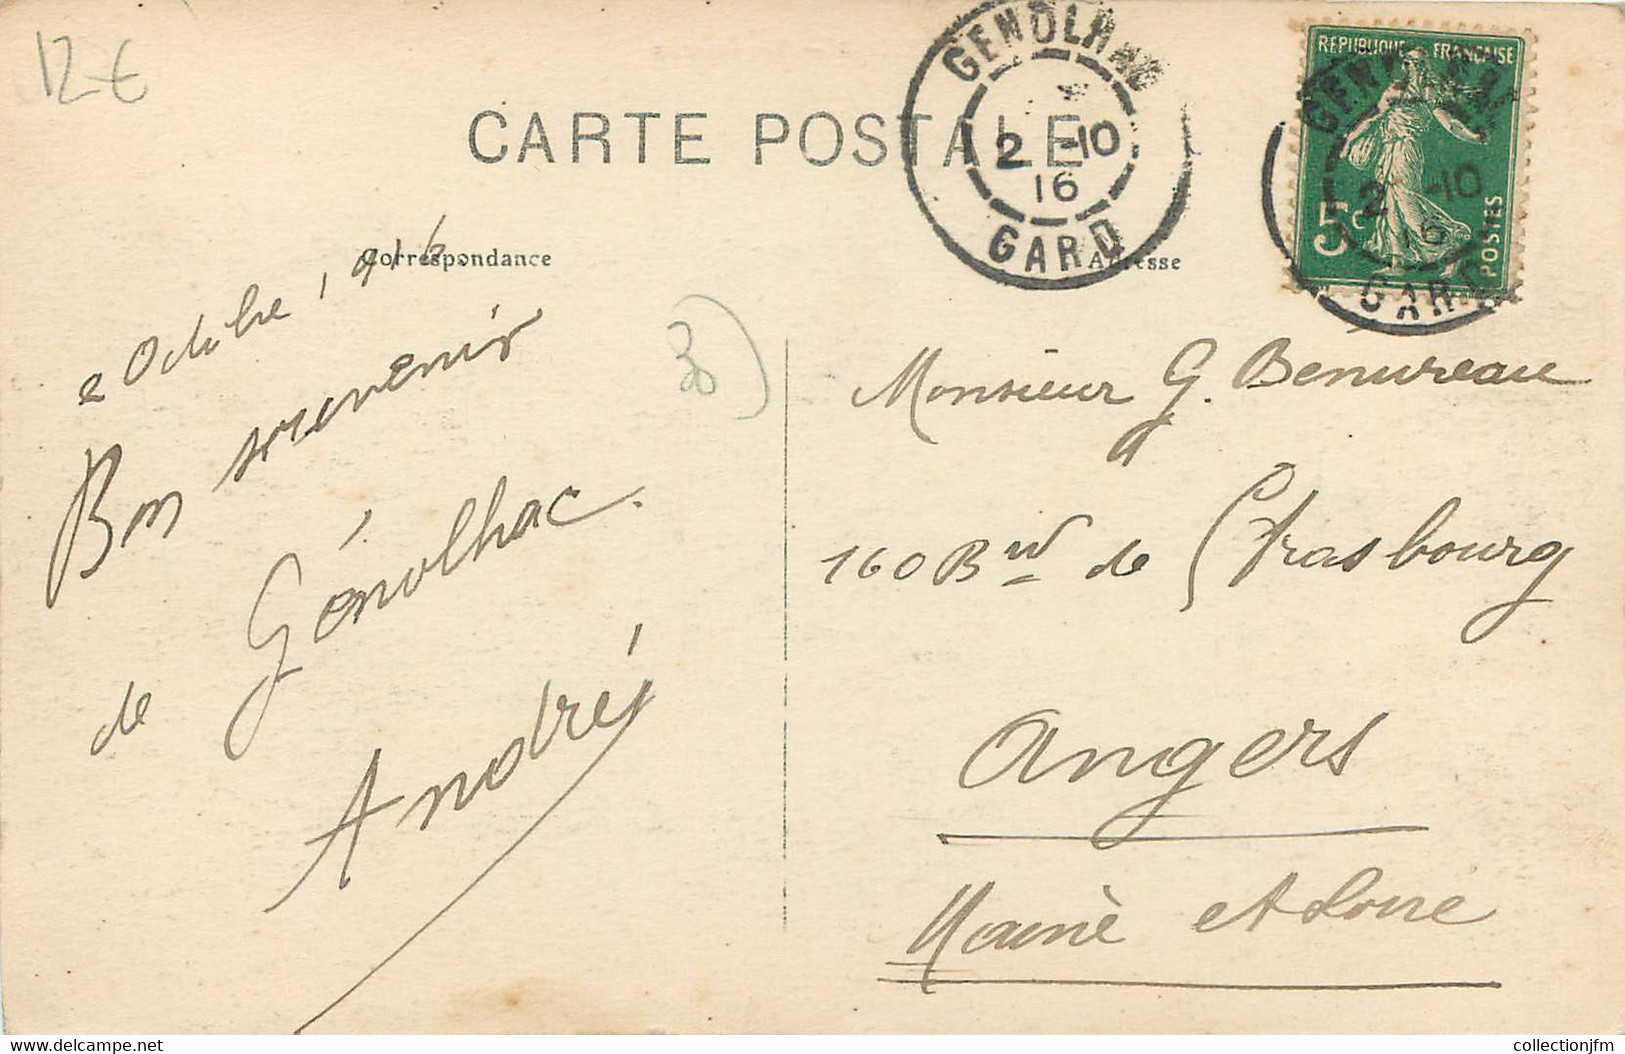 12€
CARTE POSTALE
GENOLHAC
2 -10
16
GARD
RÉPUBLIQUE FRANÇAISE
5c
POSTES
2 -10
16
GARD
Correspondance
Adresse
2 Octobre 1916
Bon souvenir
de Génolhac.
André
30
Monsieur G. Benureau
160 Bvd de Strasbourg
Angers
Maine et Loire
collectionjfm
www.delcampe.net